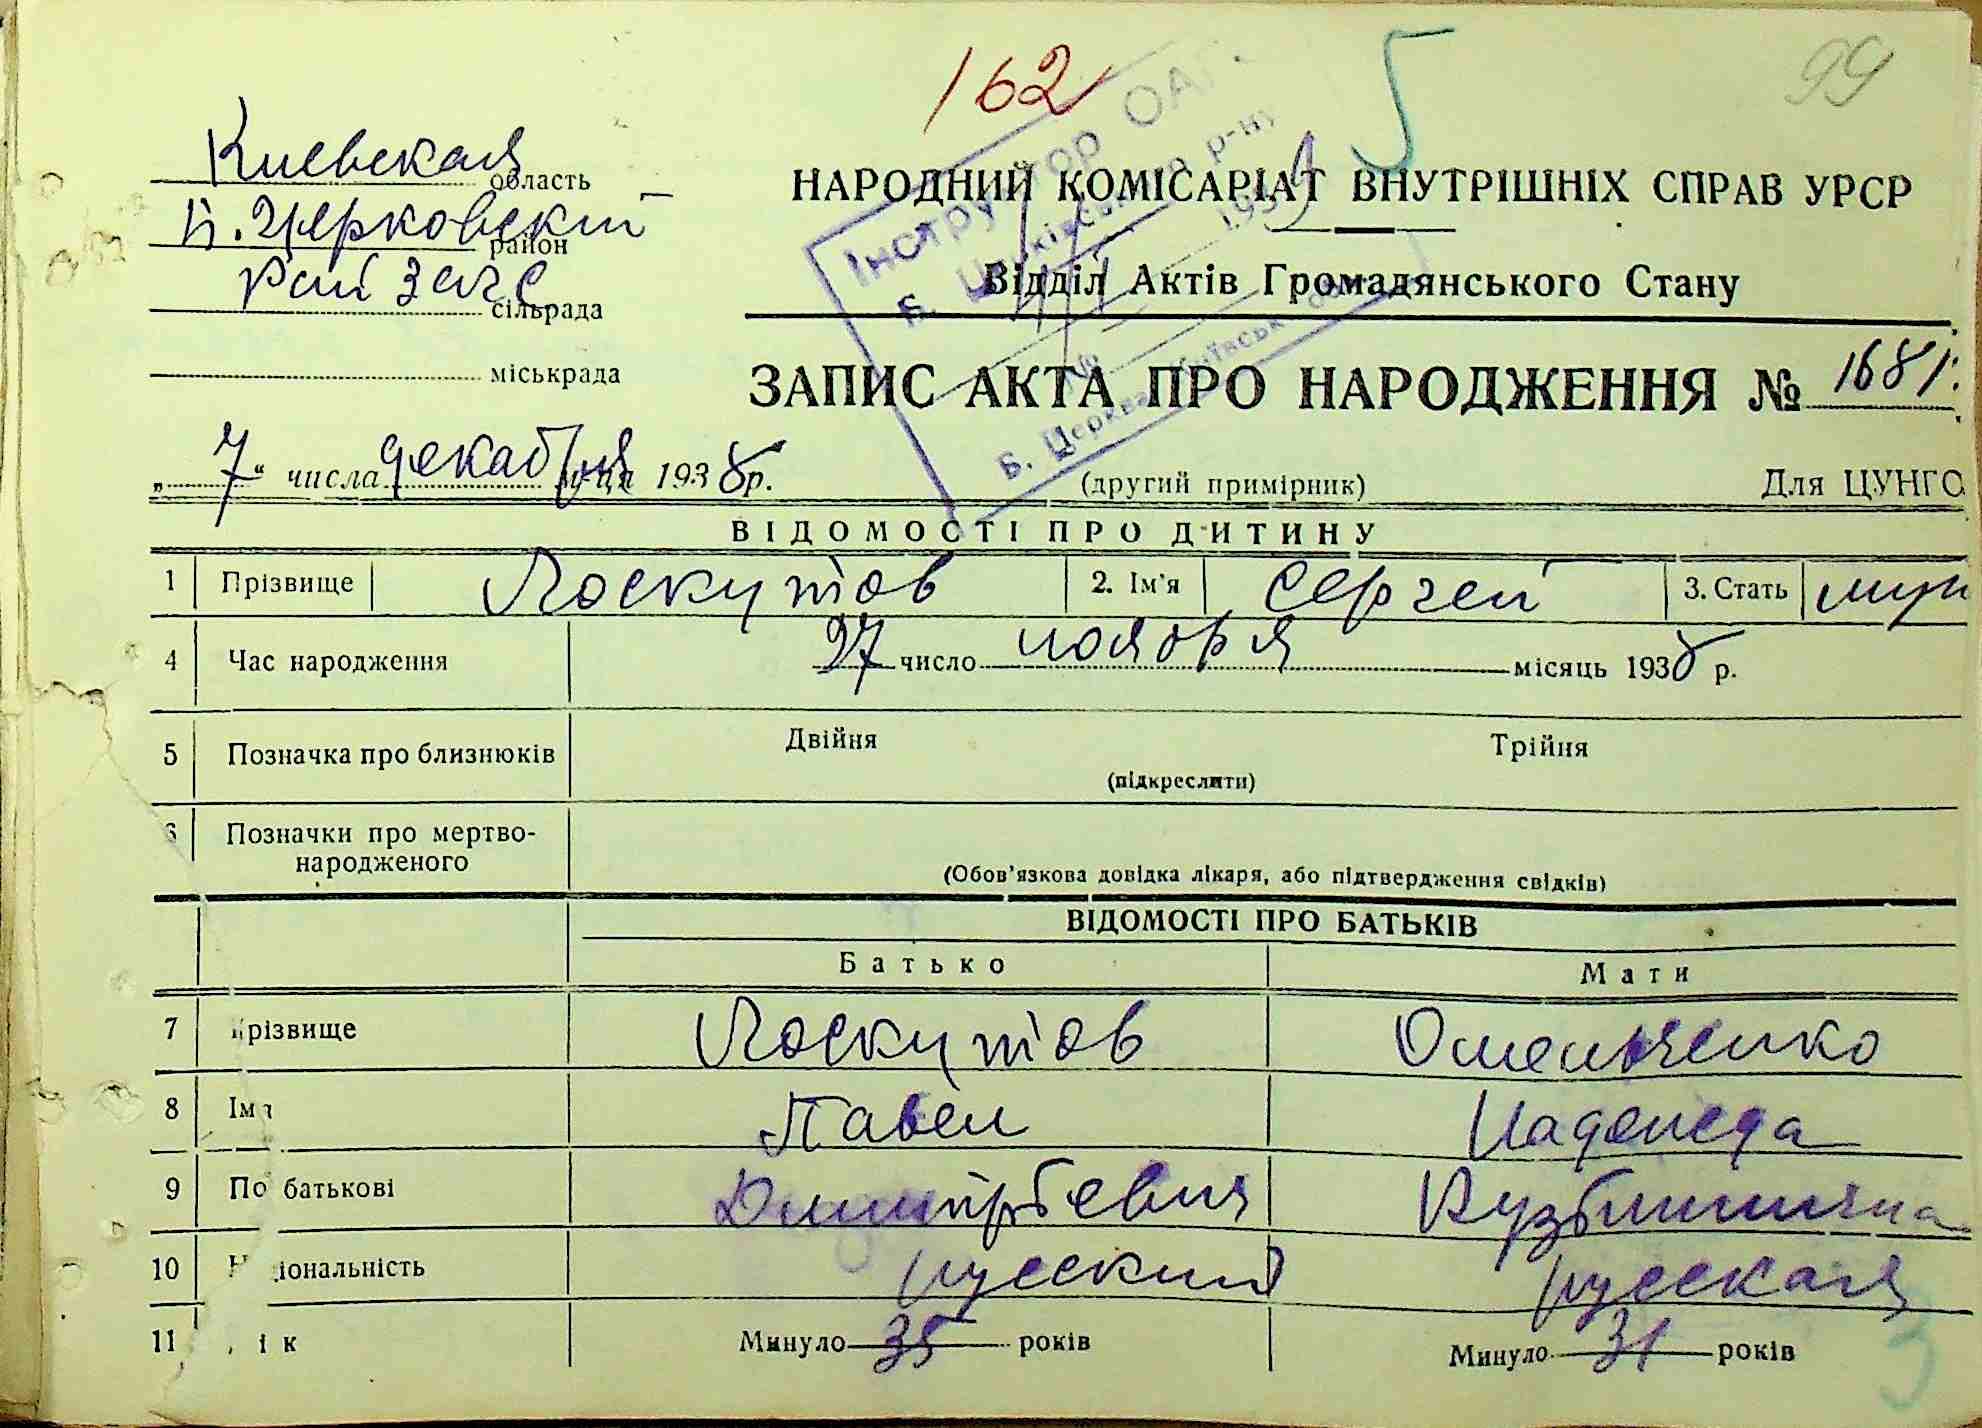 162
5
99
Киевская область
Б. Церковский район
Рай Загс сільрада
міськрада
НАРОДНИЙ КОМІСАРІАТ ВНУТРІШНІХ СПРАВ УРСР
Відділ Актів Громадянського Стану
Інструктор ОАГС
Б. Церківського р-ну
193
№
Б. Церква Київськ
ЗАПИС АКТА ПРО НАРОДЖЕННЯ № 1681.
„7“ числа декабря м-ця 1938 р.
(другий примірник)
Для ЦУНГО
ВІДОМОСТІ ПРО ДИТИНУ
1 Прізвище Лоскутов 2. Ім'я Сергей 3. Стать муж
4 Час народження 27 число ноября місяць 1938 р.
5 Позначка про близнюків Двійня Трійня
(підкреслити)
6 Позначки про мертво-
народженого
(Обов'язкова довідка лікаря, або підтвердження свідків)
ВІДОМОСТІ ПРО БАТЬКІВ
Батько Мати
7 прізвище Лоскутов Омельченко
8 Імя Павел Надежда
9 По батькові Дмитрьевич Кузьминична
10 Національність русский русская
11 Вік Минуло 35 років Минуло 31 років
3